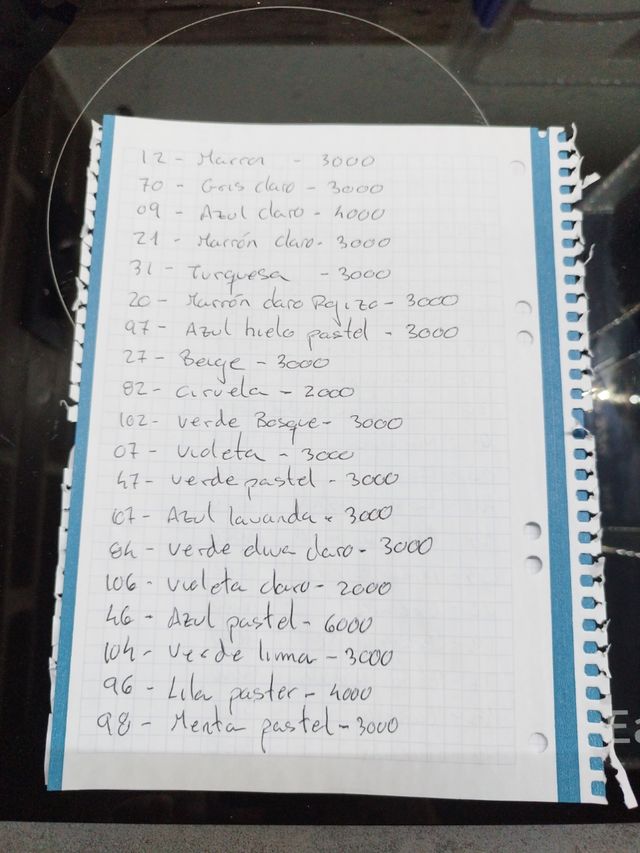 12 - Marron - 3000
70 - Gris claro - 3000
09 - Azul claro - 4000
21 - Marrón claro - 3000
31 - Turquesa - 3000
20 - Marrón claro Rojizo - 3000
97 - Azul hielo pastel - 3000
27 - Beige - 3000
82 - Ciruela - 2000
102 - Verde Bosque - 3000
07 - Violeta - 3000
47 - Verde pastel - 3000
67 - Azul lavanda - 3000
84 - Verde claro - 3000
106 - Violeta claro - 2000
46 - Azul pastel - 6000
104 - Verde lima - 3000
96 - Lila paster - 4000
98 - Menta pastel - 3000